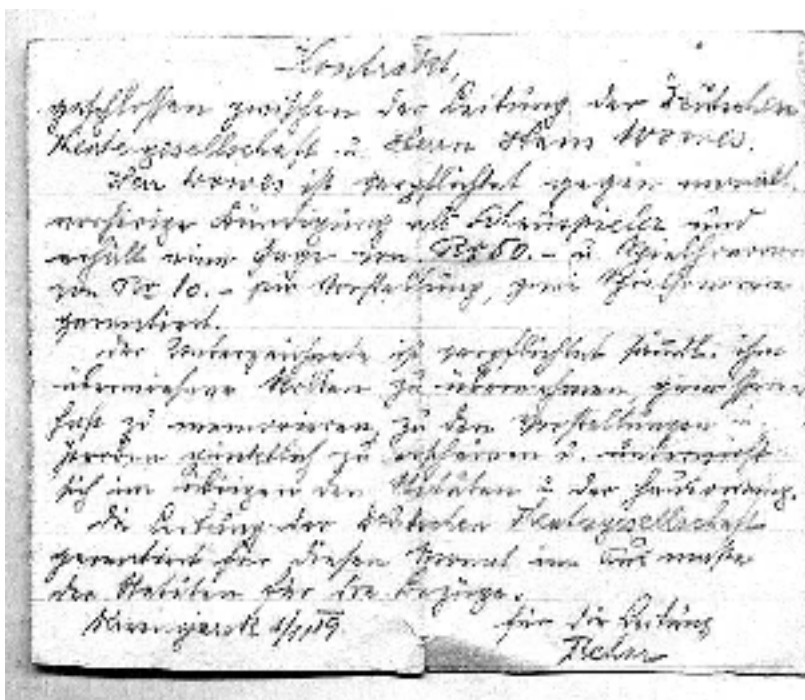 Kontrakt,
geschlossen zwischen der Leitung der Deutschen
Theatergesellschaft u. Herrn Hans Worres.
Herr Worres ist verpflichtet gegen monatl.
vorherige Kündigung als Schauspieler und
erhält eine Gage von 50.- u. Spielhonorar
von 10.- pro Vorstellung, zwei Spielhonorare
garantiert.
Der Unterzeichnete ist verpflichtet sämtl. ihm
überwiesene Rollen zu übernehmen, gewissen-
haft zu memorieren, zu den Vorstellungen u.
Proben pünktlich zu erscheinen u. unterwirft
sich im übrigen den Statuten u. der Hausordnung.
Die Leitung der Deutschen Theatergesellschaft
garantiert für diesen Monat im Ausmaße
der Statuten für die Bezüge.
für die Leitung